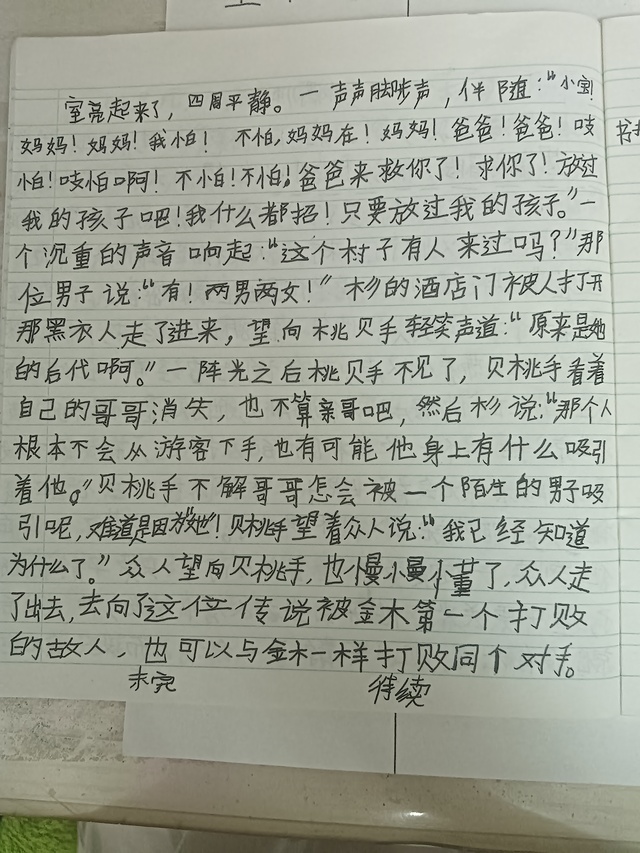 室亮起来了，四周平静。一声声脚步声，伴随：“小宝！
妈妈！妈妈！我怕！不怕，妈妈在！妈妈！爸爸！爸爸！吱
怕！吱怕啊！不怕！不怕！爸爸来救你了！求你了！放过
我的孩子吧！我什么都招！只要放过我的孩子。”一
个沉重的声音响起：“这个村子有人来过吗？”那
位男子说：“有！两男两女！”杉的酒店门被人打开
那黑衣人走了进来，望向桃贝手轻笑声道：“原来是她
的后代啊。”一阵光之后桃贝手不见了，贝桃手看着
自己的哥哥消失，也不算亲哥吧，然后杉说：“那个人
根本不会从游客下手，也有可能他身上有什么吸引
着他。”贝桃手不解哥哥怎会被一个陌生的男子吸
引呢，难道是因为“她”！贝桃手望着众人说：“我已经知道
为什么了。”众人望向贝桃手，也慢慢懂了，众人走
了出去，去向了这位传说被金木第一个打败
的故人，也可以与金木一样打败同个对手。
未完 待续